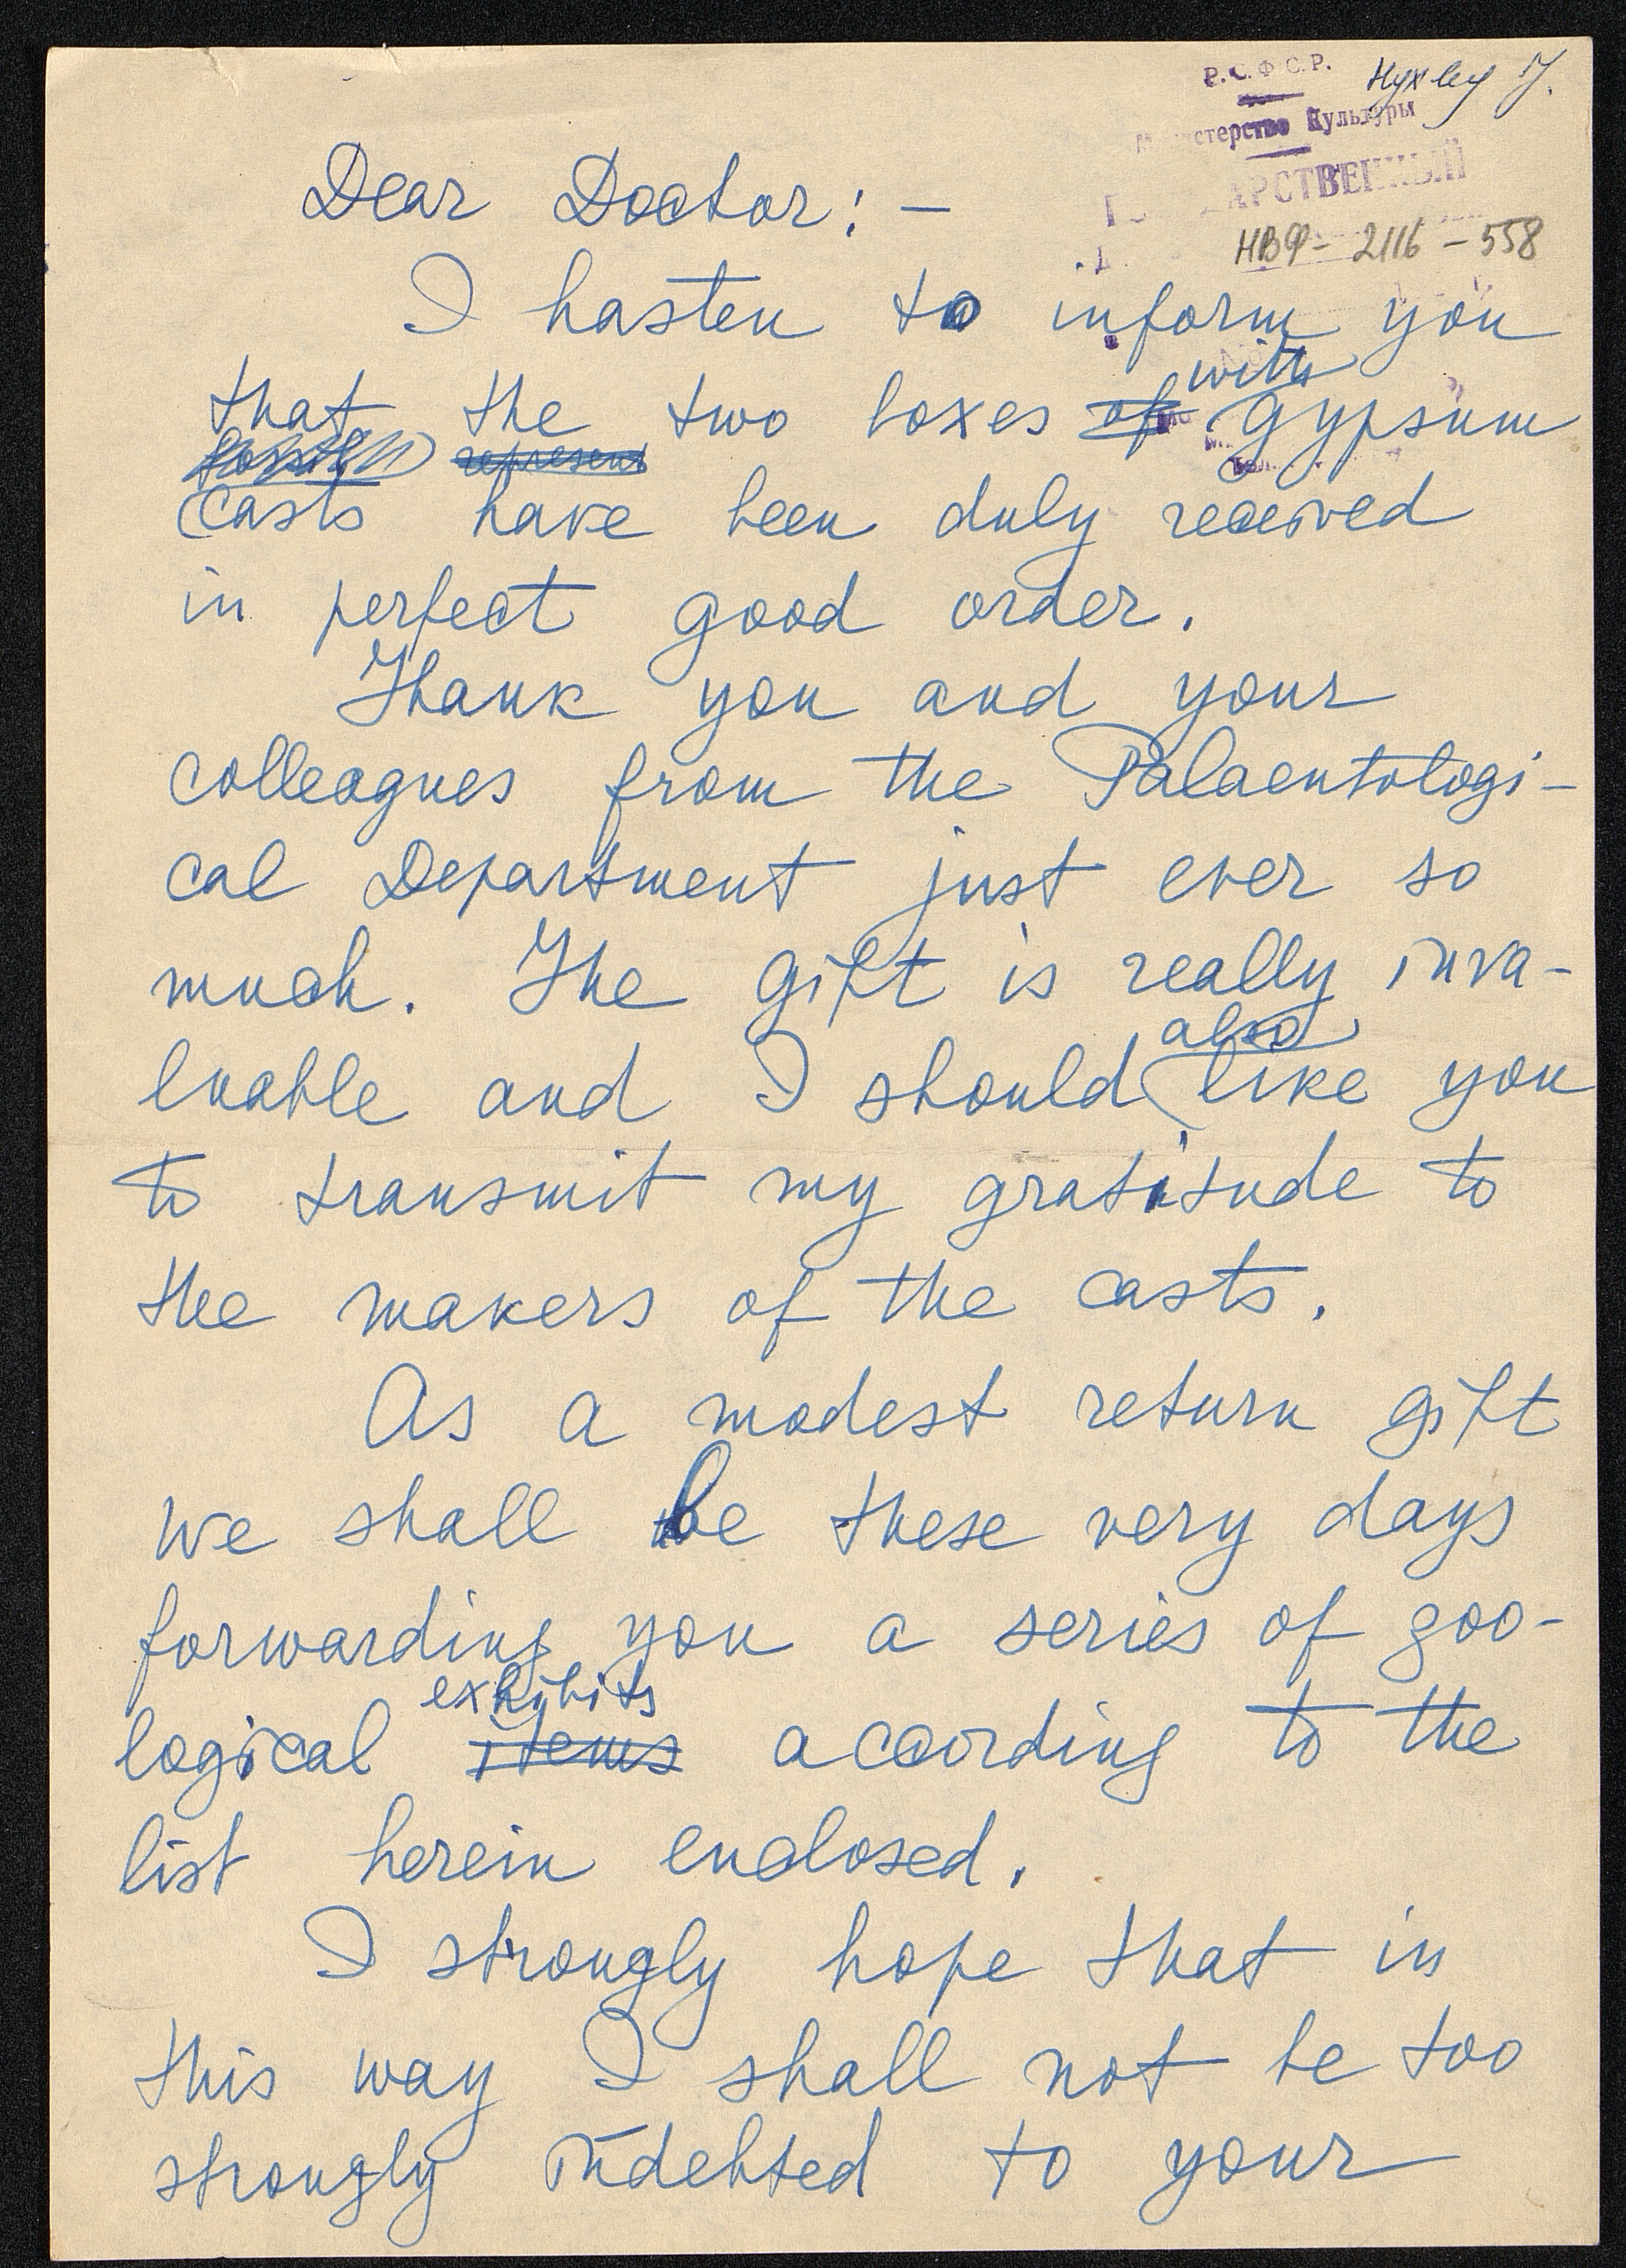 Р.С.Ф.С.Р.
Hyxley J.
Министерство Культуры
ГОСУДАРСТВЕННЫЙ
НВФ - 2116 - 558
Dear Doctor: —
I hasten to inform you
with
that the two boxes of gypsum
represent
casts have been duly received
in perfect good order.
Thank you and your
colleagues from the Palaentologi-
cal Department just ever so
much. The gift is really inva-
also
luable and I should like you
to transmit my gratitude to
the makers of the casts.
As a modest return gift
we shall be these very days
forwarding you a series of zoo-
exhibits
logical items according to the
list herein enclosed.
I strongly hope that in
this way I shall not be too
strongly indebted to your